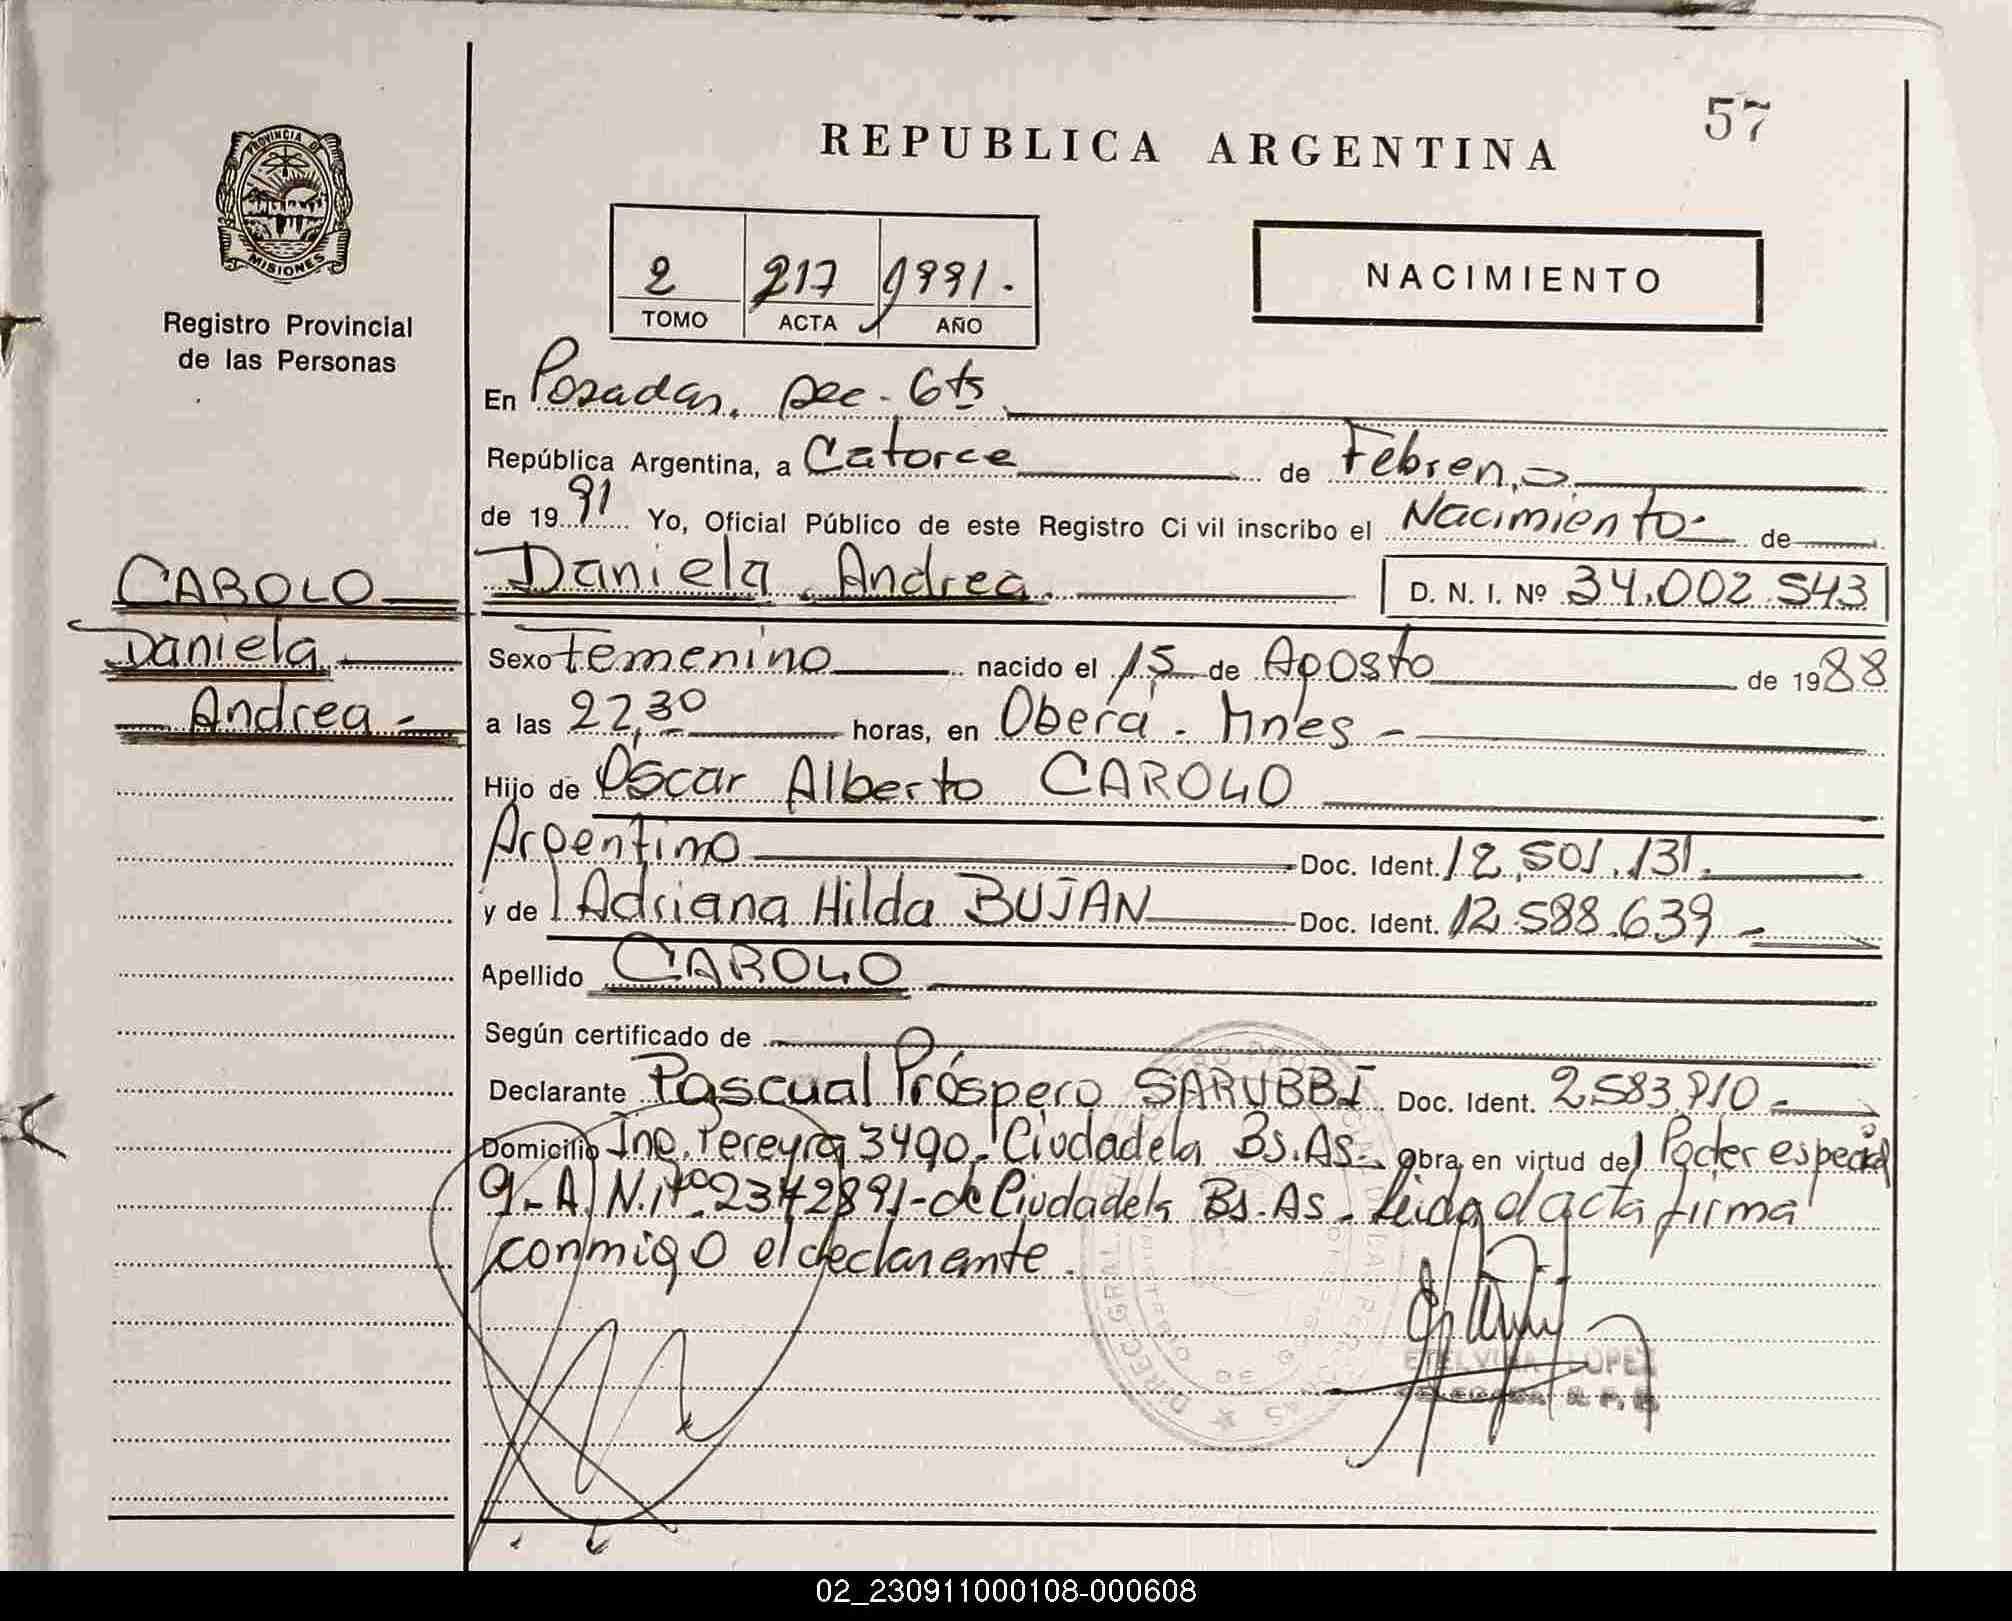 57
REPUBLICA ARGENTINA
PROVINCIA DE
MISIONES
Registro Provincial
de las Personas
2 217 1991.
TOMO ACTA AÑO
NACIMIENTO
En Posadas, sec. 6ta
República Argentina, a Catorce de Febrero
de 1991 Yo, Oficial Público de este Registro Ci vil inscribo el Nacimiento de
CAROLO
Daniela
Andrea -
Daniela Andrea. D. N. I. Nº 34.002.543
Sexo Femenino nacido el 15 de Agosto de 1988
a las 22,30 horas, en Oberá - Mnes -
Hijo de Oscar Alberto CAROLO
Argentino Doc. Ident. 12.501.131.
y de Adriana Hilda BUJAN Doc. Ident. 12.588.639 -
Apellido CAROLO
Según certificado de
Declarante Pascual Próspero SARUBBI Doc. Ident. 2583.910 -
Domicilio Ing. Pereyra 3490 - Ciudadela Bs. As - Obra en virtud del Poder especial
Nº 2342891 - de Ciudadela Bs. As - Leida el acta firma
conmigo el declarante.
ETELVINA LOPEZ
02_230911000108-000608